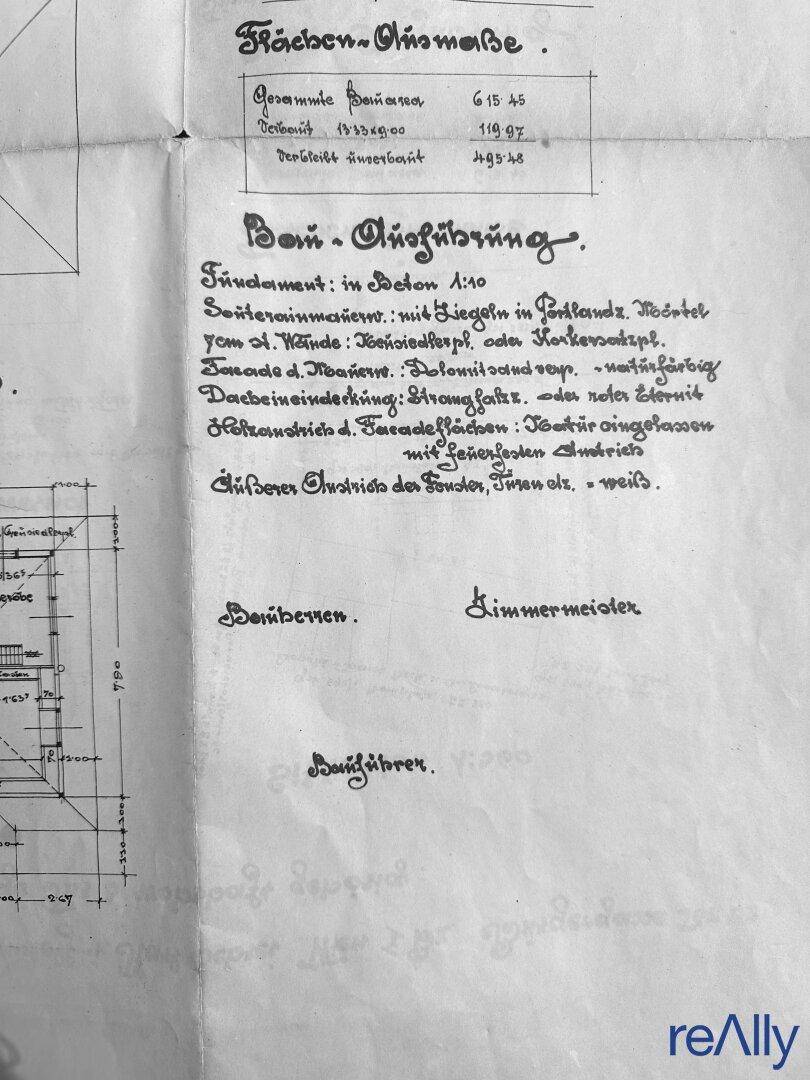 Flächen-Ausmaße.
Gesammte Bauarea 615.45
Verbaut 13.33x9.00 119.97
Verbleibt unverbaut 495.48
Bau-Ausführung.
Fundament: in Beton 1:10
Souterainmauerw.: mit Ziegeln in Portlandz. Mörtel
7cm st. Wände: Neusiedlerpl. oder Korkersatzpl.
Facade d. Mauerw.: Dolomitsand verp. - naturfärbig
Dacheineindeckung: Strangfalzz. oder roter Eternit
Holzanstrich d. Facadeflächen: Natur eingelassen
mit feuerfesten Anstrich
Äußerer Anstrich der Fenster, Türen etz. = weiß.
Bauherren. Zimmermeister
Bauführer.
1.00
Neusiedlerpl.
1.00
7.90
1.63⁵ 70
1.00
1.00
1.10
2.67
reAlly